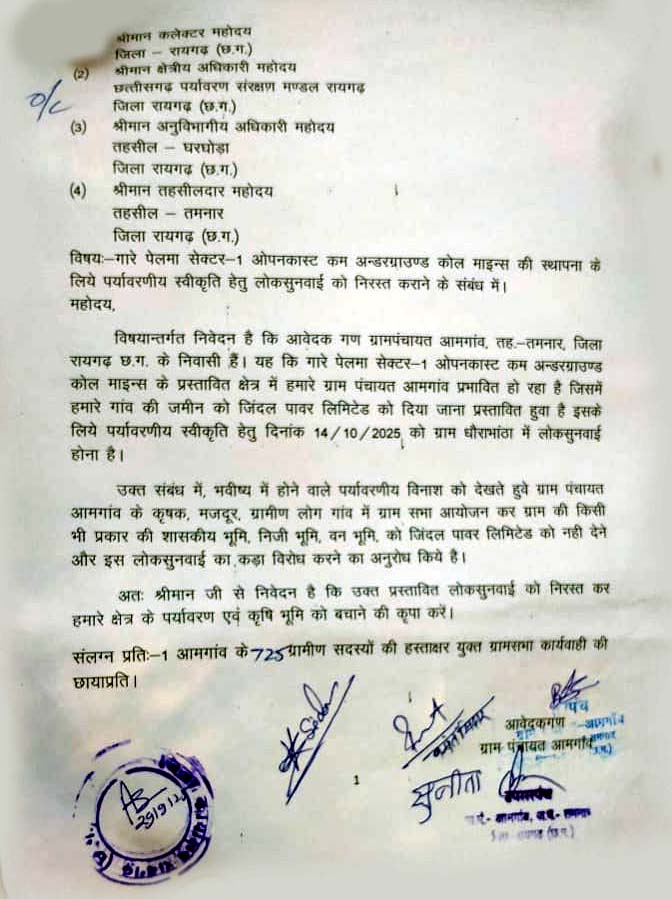 श्रीमान कलेक्टर महोदय
जिला – रायगढ़ (छ.ग.)
(2) श्रीमान क्षेत्रीय अधिकारी महोदय
o/c
छत्तीसगढ़ पर्यावरण संरक्षण मण्डल रायगढ़
जिला रायगढ़ (छ.ग.)
(3) श्रीमान अनुविभागीय अधिकारी महोदय
तहसील – घरघोड़ा
जिला रायगढ़ (छ.ग.)
(4) श्रीमान तहसीलदार महोदय
तहसील – तमनार
जिला रायगढ़ (छ.ग.)
विषयः–गारे पेलमा सेक्टर–1 ओपनकास्ट कम अन्डरग्राउण्ड कोल माइन्स की स्थापना के
लिये पर्यावरणीय स्वीकृति हेतु लोकसुनवाई को निरस्त कराने के संबंध में।
महोदय,
विषयान्तर्गत निवेदन है कि आवेदक गण ग्रामपंचायत आमगांव, तह.–तमनार, जिला
रायगढ़ छ.ग. के निवासी हैं। यह कि गारे पेलमा सेक्टर–1 ओपनकास्ट कम अन्डरग्राउण्ड
कोल माइन्स के प्रस्तावित क्षेत्र में हमारे ग्राम पंचायत आमगांव प्रभावित हो रहा है जिसमें
हमारे गांव की जमीन को जिंदल पावर लिमिटेड को दिया जाना प्रस्तावित हुवा है इसके
लिये पर्यावरणीय स्वीकृति हेतु दिनांक 14/10/2025 को ग्राम धौराभांठा में लोकसुनवाई
होना है।
उक्त संबंध में, भवीष्य में होने वाले पर्यावरणीय विनाश को देखते हुवे ग्राम पंचायत
आमगांव के कृषक, मजदूर, ग्रामीण लोग गांव में ग्राम सभा आयोजन कर ग्राम की किसी
भी प्रकार की शासकीय भूमि, निजी भूमि, वन भूमि, को जिंदल पावर लिमिटेड को नही देने
और इस लोकसुनवाई का कड़ा विरोध करने का अनुरोध किये है।
अतः श्रीमान जी से निवेदन है कि उक्त प्रस्तावित लोकसुनवाई को निरस्त कर
हमारे क्षेत्र के पर्यावरण एवं कृषि भूमि को बचाने की कृपा करें।
संलग्न प्रतिः–1 आमगांव के 725 ग्रामीण सदस्यों की हस्ताक्षर युक्त ग्रामसभा कार्यवाही की
छायाप्रति।
पंच
आवेदकगण
आमगाँव
ग्राम पंचायत आमगाँव
1
सुनीता
उपसरपंच
आमगांव, ज.पं.- तमनार
रायगढ़ (छ.ग.)